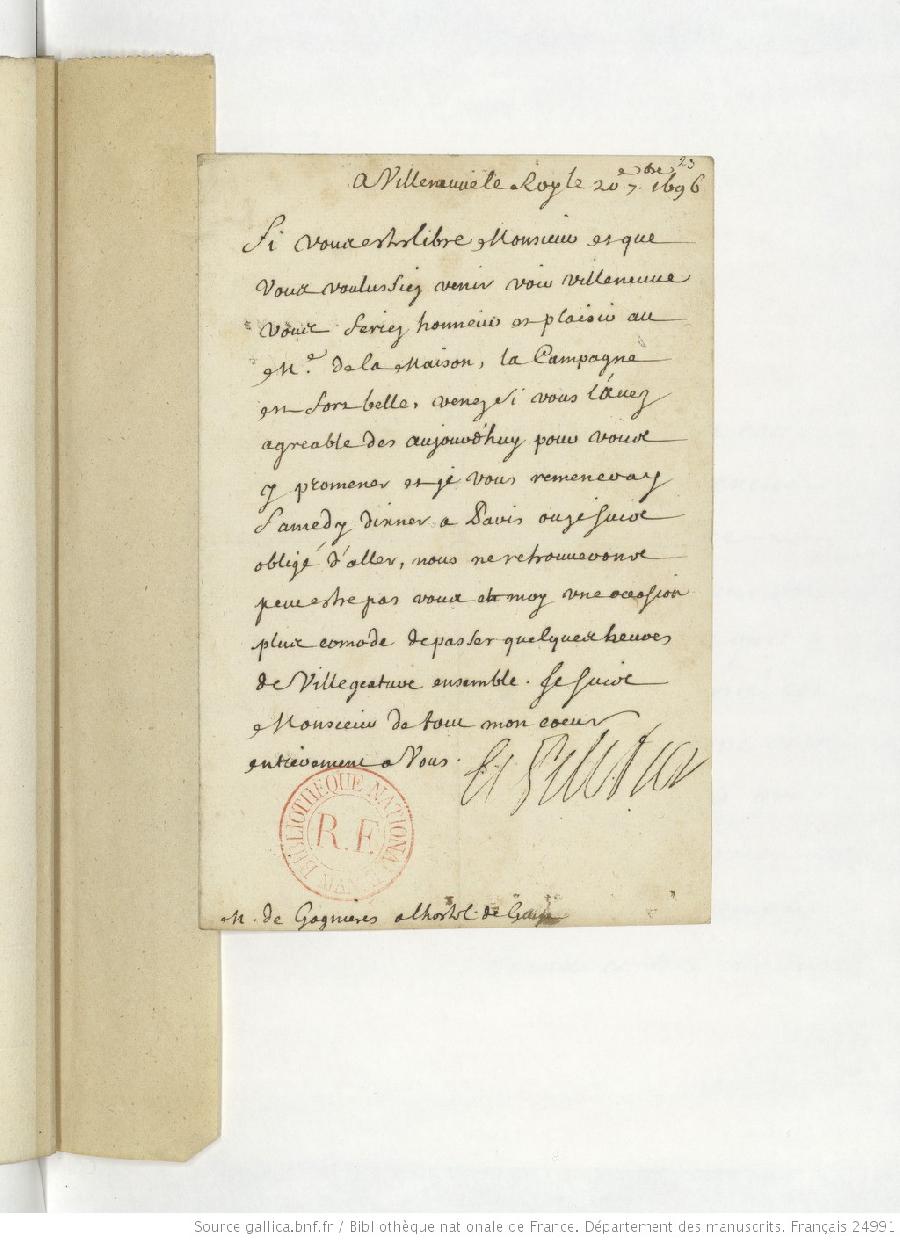 23
a Villeneuve le Roy le 20e 7bre 1696
Si vous estes libre Monsieur et que
vous voulussiez venir voir villeneuve
vous feriez honneur et plaisir au
Me. de la Maison, la Campagne
est fort belle, venez si vous l'avez
agreable des aujourd'huy pour vous
y promener et je vous remeneray
Samedy dinner a Paris ou je suis
obligé d'aller, nous ne retrouverons
peut estre pas vous et moy une occasion
plus comode de passer quelques heures
de Villegeature ensemble. Je suis
Monsieur de tout mon coeur
entierement a Vous.
BIBLIOTHÈQUE NATIONALE
R.F.
M. de Gagnieres a lhostel de Guise
Source gallica.bnf.fr / Bibliothèque nationale de France. Département des manuscrits. Français 24991